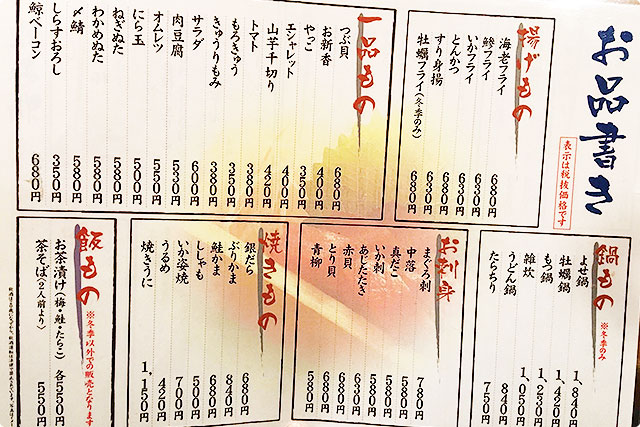 お品書き
表示は税抜価格です
揚げもの
海老フライ 680円
鯵フライ 630円
いかフライ 630円
とんかつ 630円
すり身揚 680円
牡蠣フライ(冬季のみ) 680円
一品もの
つぶ貝 680円
お新香 400円
やっこ 250円
エシャレット 400円
山芋千切り 420円
トマト 380円
もろきゅう 250円
きゅうりもみ 380円
サラダ 600円
肉豆腐 530円
オムレツ 550円
にら玉 500円
ねぎぬた 580円
わかめぬた 580円
〆鯖 580円
しらすおろし 350円
鯨ベーコン 680円
鍋もの ※冬季のみ
よせ鍋 1,840円
牡蠣鍋 1,420円
もつ鍋 1,230円
雑炊 1,050円
うどん鍋 840円
たらちり 750円
お刺身
まぐろ刺 780円
中落 580円
真だこ 580円
いか刺 580円
あじたたき 580円
赤貝 680円
とり貝 680円
青柳 580円
焼きもの
銀だら 680円
ぶりかま 840円
鮭かま 680円
ししゃも 500円
いか姿焼 700円
うるめ 420円
焼きうに 1,150円
飯もの ※冬季以外での販売となります
お茶漬け(梅・鮭・たらこ) 各550円
茶そば(2人前より) 550円